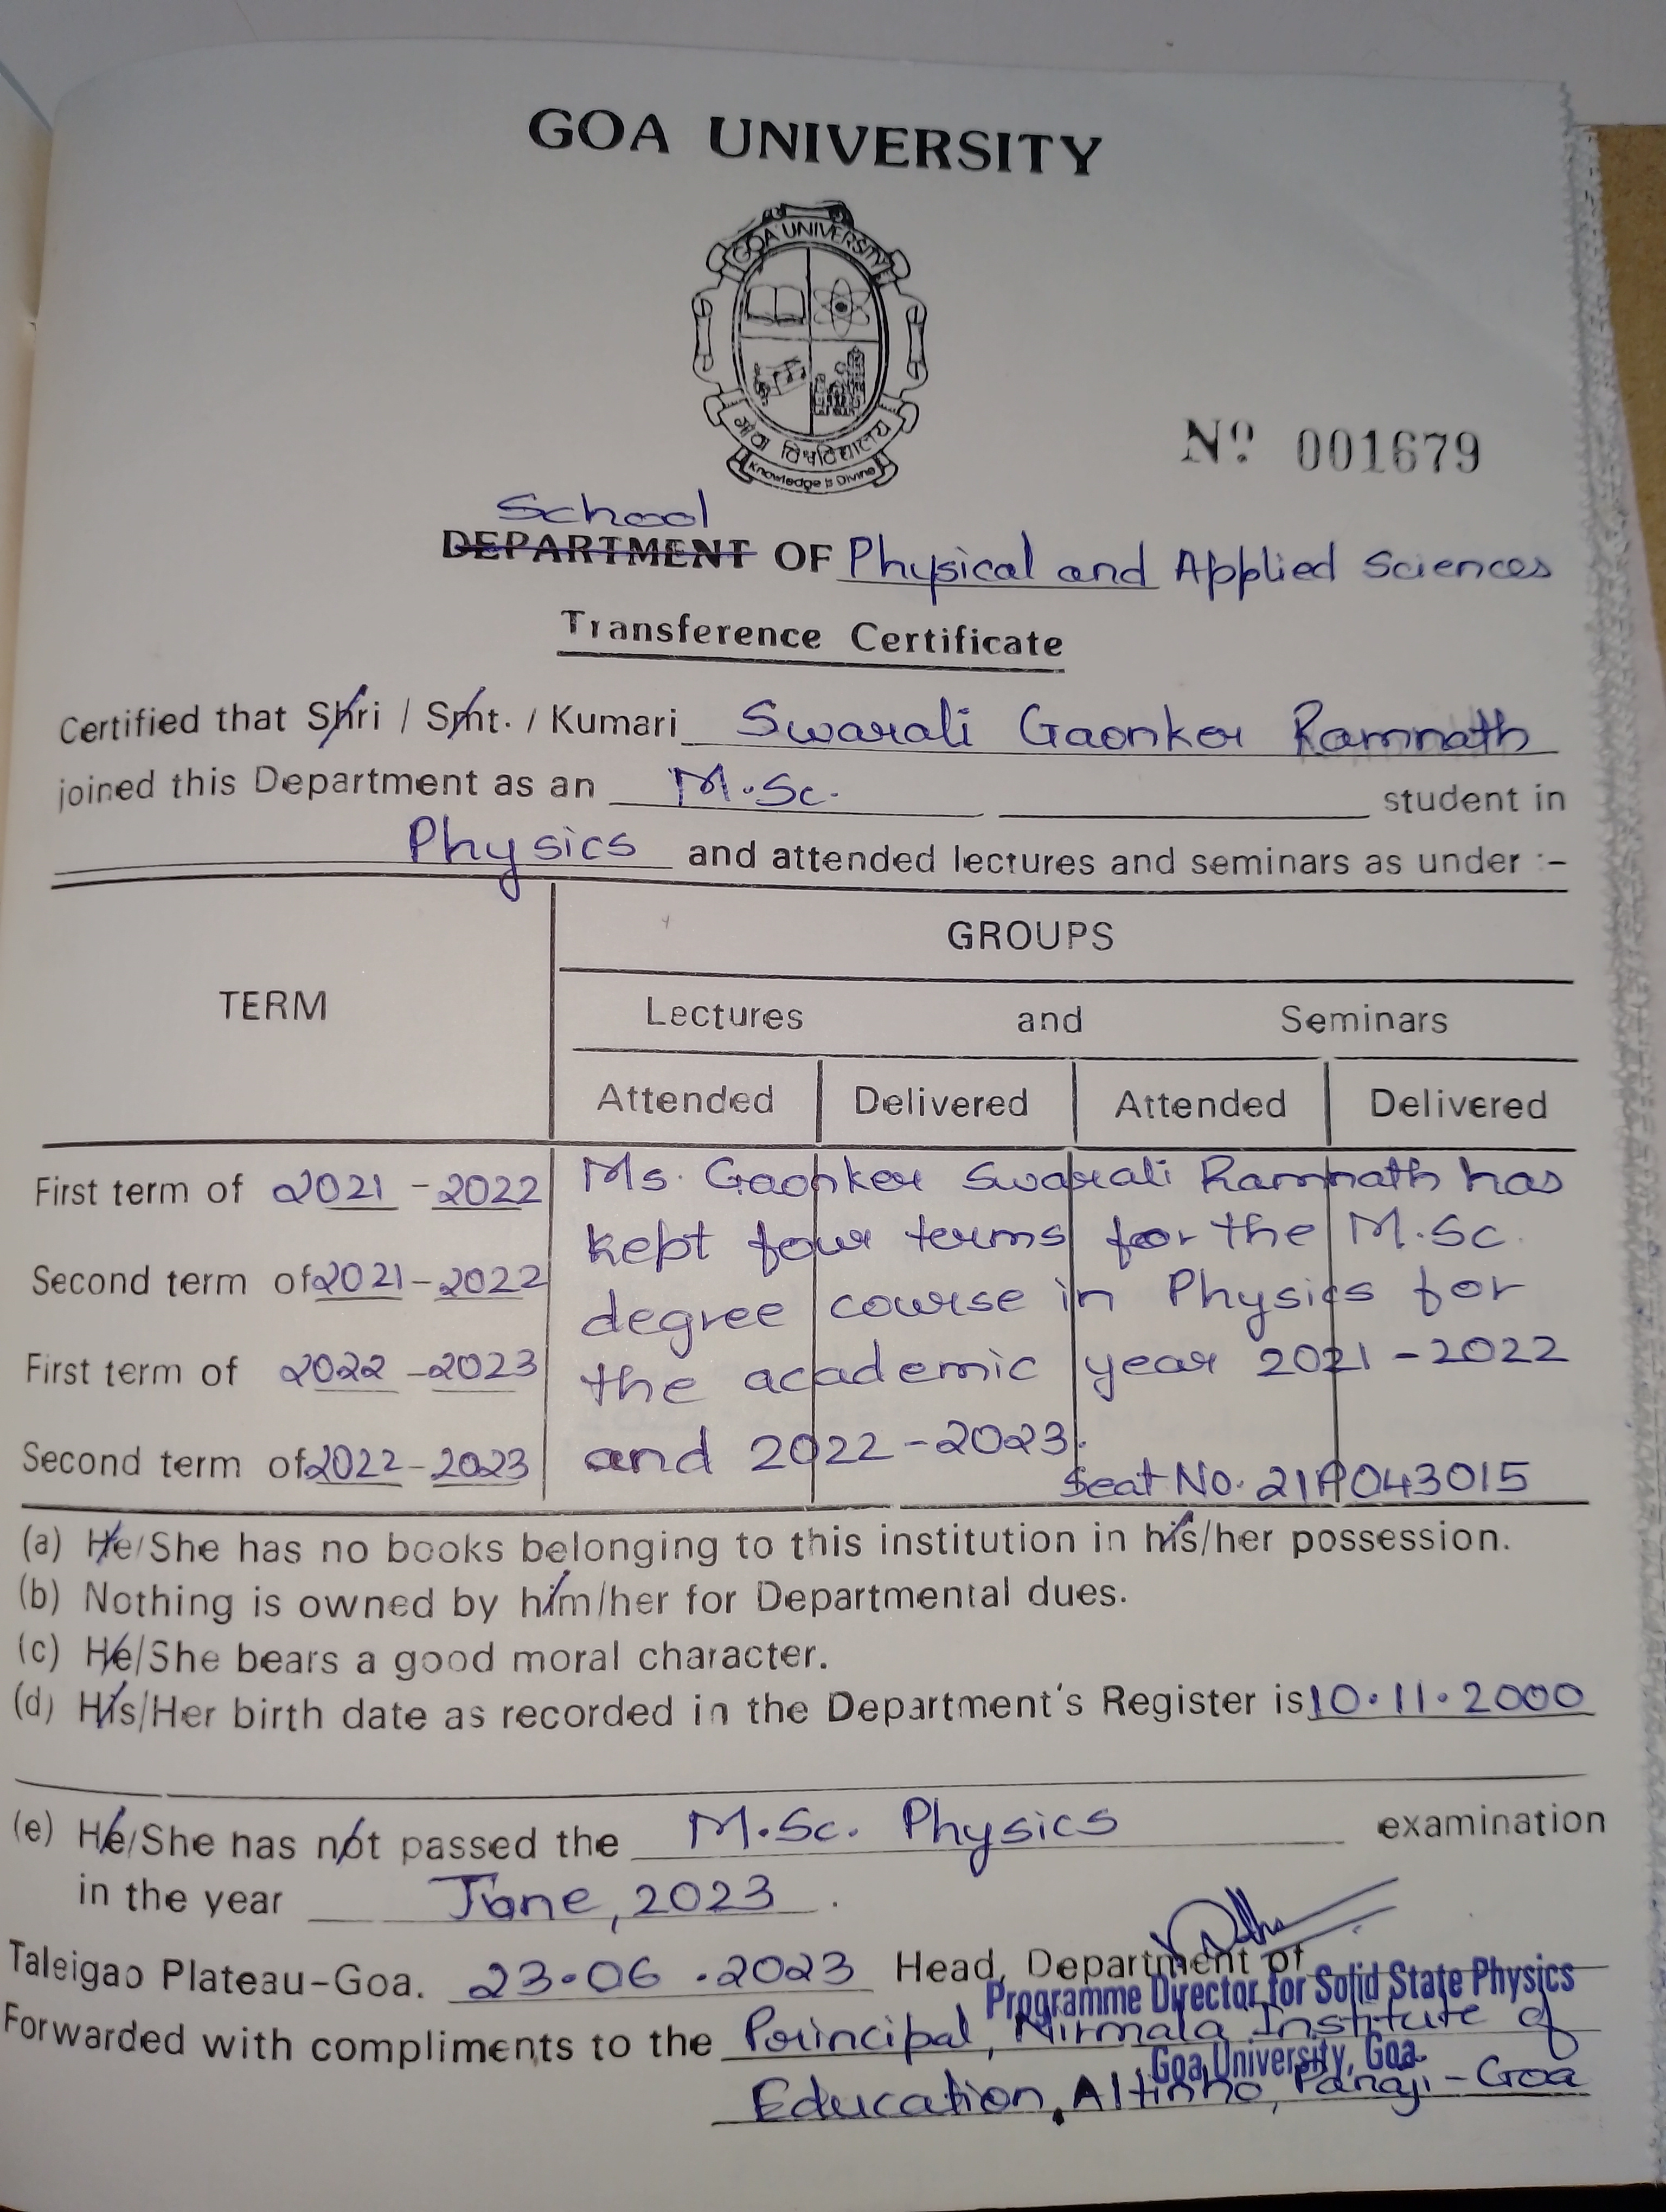 GOA UNIVERSITY
GOA UNIVERSITY
गोंवा विश्वविद्यालय
Knowledge is Divine
Nº 001679
School
DEPARTMENT OF Physical and Applied Sciences
Transference Certificate
Certified that Shri / Smt. / Kumari Swarali Gaonker Ramnath
joined this Department as an M.Sc. student in
Physics and attended lectures and seminars as under :-
GROUPS
TERM
Lectures and Seminars
Attended Delivered Attended Delivered
First term of 2021 - 2022 Ms. Gaonker Swarali Ramnath has
kept four terms for the M.Sc.
Second term of 2021 - 2022
degree course in Physics for
First term of 2022 - 2023
the academic year 2021 - 2022
Second term of 2022 - 2023 and 2022 - 2023.
Seat No. 21P043015
(a) He/She has no books belonging to this institution in his/her possession.
(b) Nothing is owned by him/her for Departmental dues.
(c) He/She bears a good moral character.
(d) His/Her birth date as recorded in the Department's Register is 10.11.2000
(e) He/She has not passed the M.Sc. Physics examination
in the year June, 2023.
Taleigao Plateau-Goa. 23.06.2023 Head, Department of
Programme Director for Solid State Physics
Forwarded with compliments to the Principal, Nirmala Institute of
Goa University, Goa.
Education, Altinho, Panaji - Goa